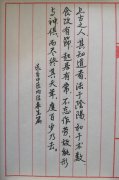 上古之人，其知道者，法于陰陽，和于术數，
食飲有節，起居有常，不妄作勞，故能形
与神俱，而尽终其天年，度百岁乃去。